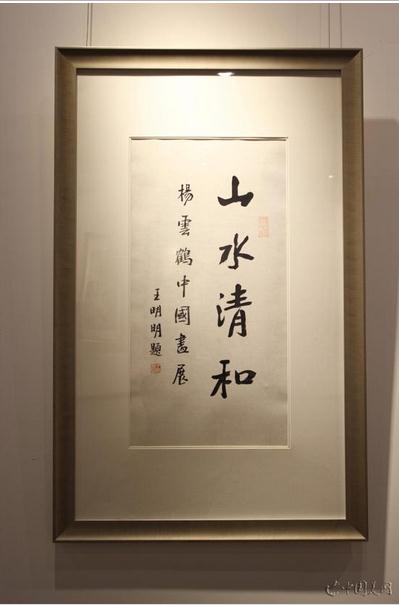 山水清和
楊雲鶴中國畫展
王明明題
中国文网